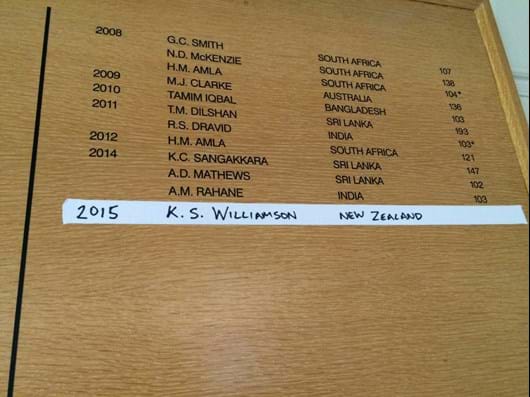 2008 G.C. SMITH SOUTH AFRICA 107
N.D. McKENZIE SOUTH AFRICA 138
H.M. AMLA SOUTH AFRICA 104*
2009 M.J. CLARKE AUSTRALIA 136
2010 TAMIM IQBAL BANGLADESH 103
2011 T.M. DILSHAN SRI LANKA 193
R.S. DRAVID INDIA 103*
2012 H.M. AMLA SOUTH AFRICA 121
2014 K.C. SANGAKKARA SRI LANKA 147
A.D. MATHEWS SRI LANKA 102
A.M. RAHANE INDIA 103
2015 K. S. WILLIAMSON NEW ZEALAND